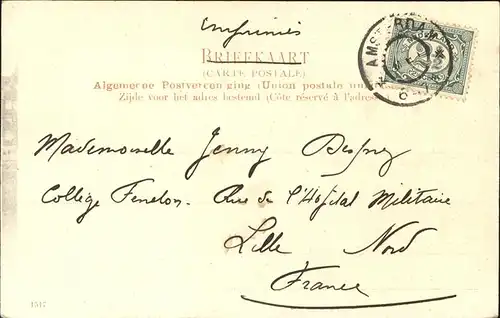 Imprimés
BRIEFKAART
(CARTE POSTALE)
Algemeene Postvereeniging (Union postale un
Zijde voor het adres bestemd (Côté réservé à l'adres
AMSTERDAM
Mademoiselle Jenny Desprez
Collège Fenelon. Rue de l'Hopital Militaire
Lille Nord
France
1517